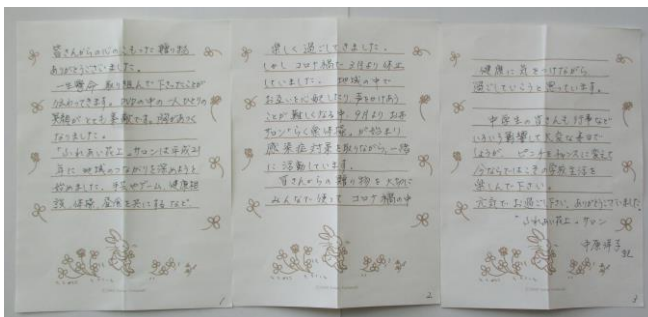 皆さんからの心のこもった贈り物
ありがとうございました。
一生懸命 取り組んで下さったことが
伝わってきます。 の中の一人ひとりの
笑顔がとても素敵です。胸があつく
なりました。
"ふれあい花よ"サロンは平成21
年に 地域のつながりを深めようと
始めました。手芸やゲーム、健康相
談、体操、昼食を共にするなど
1
楽しく過ごしてきました。
しかし コロナ禍で3月より休止
していました。 地域の中で
お互いを心配したり 声をかけあう
ことが難しくなる中、9月より お茶
サロン らく楽体操 が始まり
感染症対策を取りながら、一緒
に活動しています。
皆さんからの贈り物を大切に
みんなで使って コロナ禍の中
2
健康に気をつけながら
過ごしていこうと思っています。
中学生の皆さんも行事など
いろいろ影響して大変な毎日で
しょうが、ピンチをチャンスに変えて
今ならではこその学校生活を
楽しんで下さい。
元気でお過ごし下さい。ありがとうございました
"ふれあい花よ"サロン
中原
3